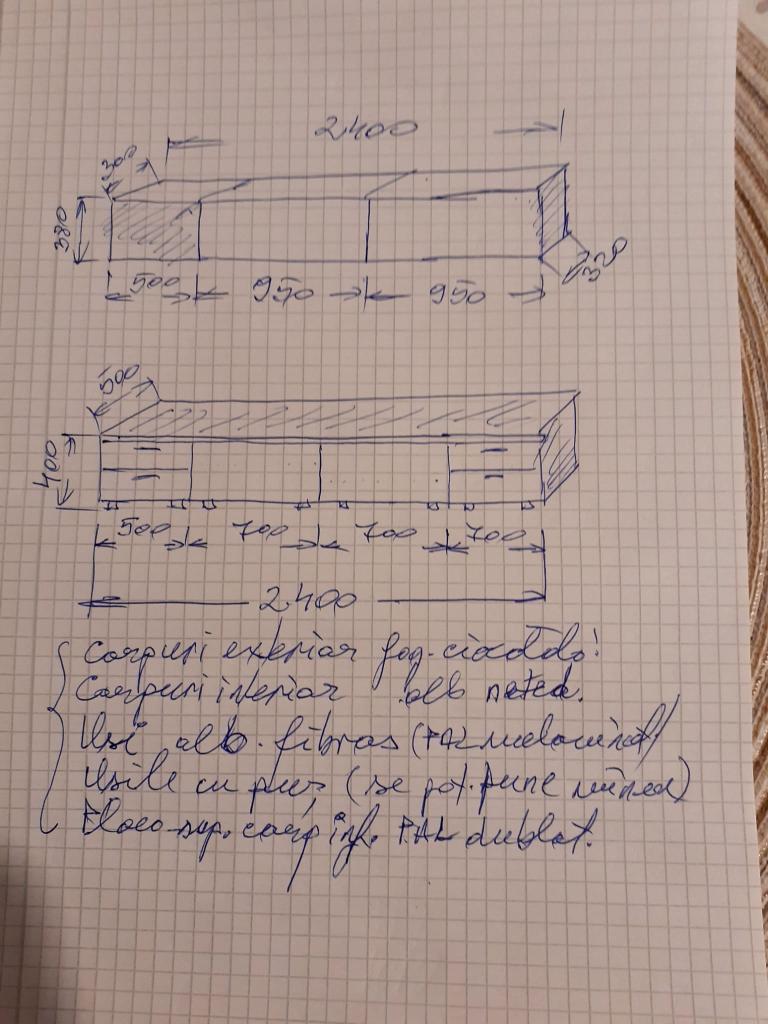 2400
300
380
500 950 950
320
500
400
500 700 700 700
2400
Corpuri exterior fag-ciocoldo!
Corpuri interior alb neted.
Usi alb fibros (PAL melaminat)
Usile cu push (se pot pune mîner)
Placa sup. corp inf. PAL dublat.